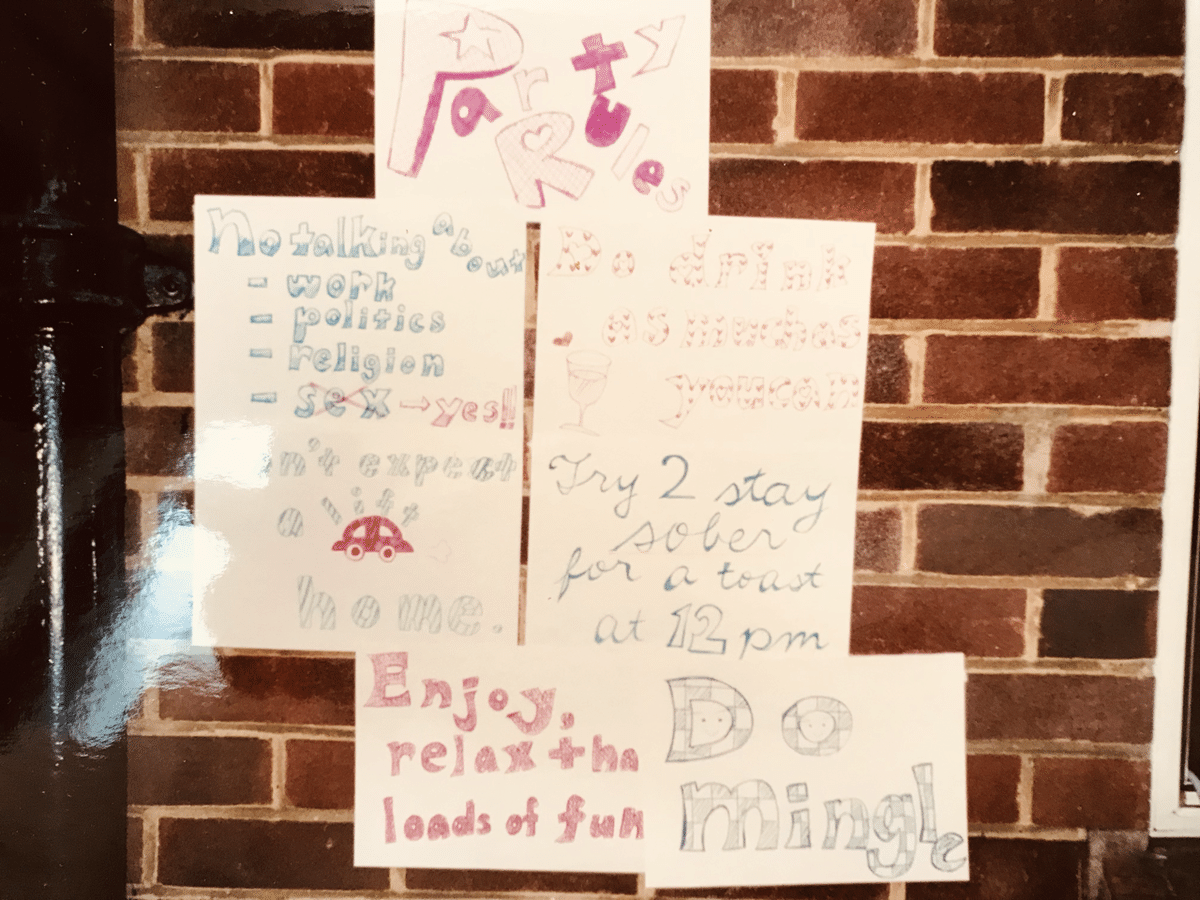 Party
Rules
No talking about
- work
- politics
- religion
- sex → yes!!
n't expect
a lift
home.
Do drink
as much as
you can
Try 2 stay
sober
for a toast
at 12 pm
Enjoy,
relax + ha
loads of fun
Do
mingle